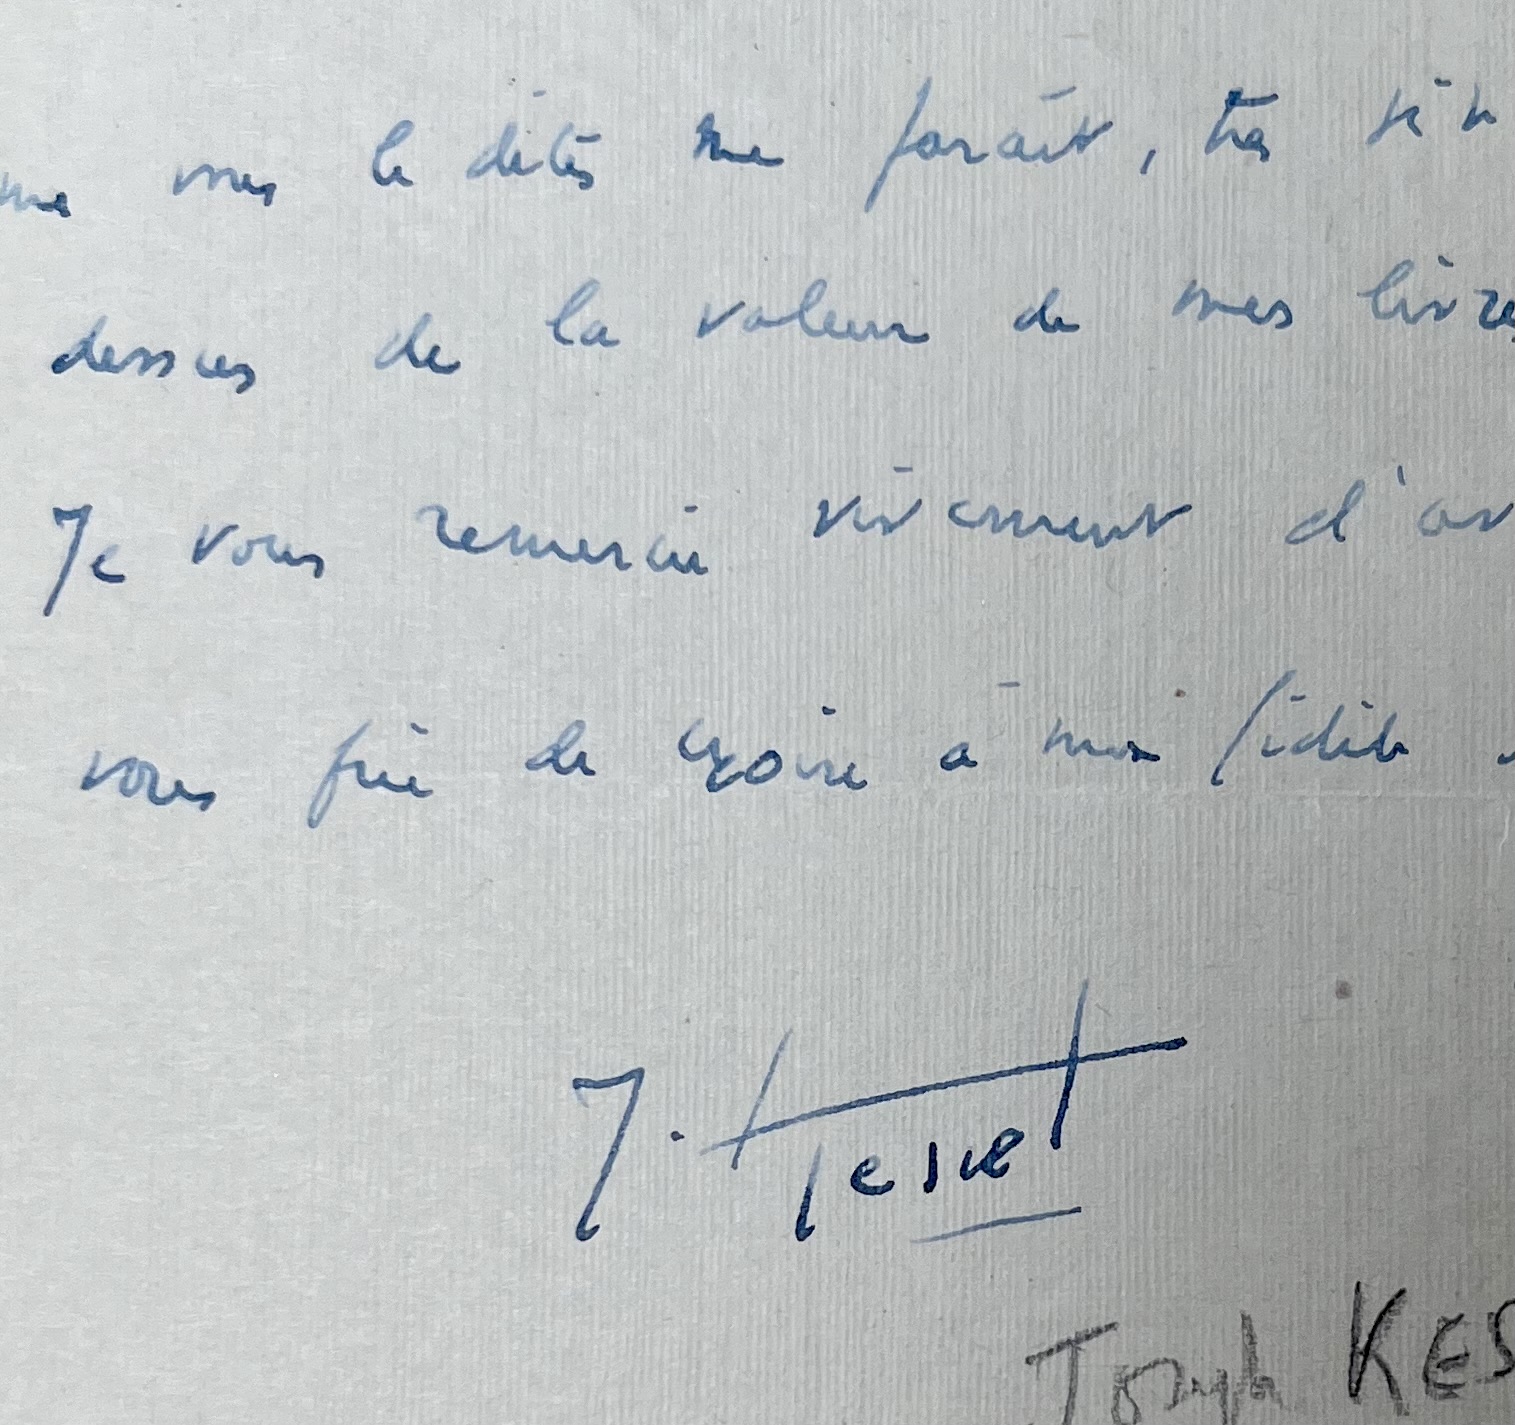 vous le dites me paraît, très
dessus de la valeur de mes livres
Je vous remercie vivement d'av
vous prie de croire à ma fidèle
J. Kessel
Joseph KES